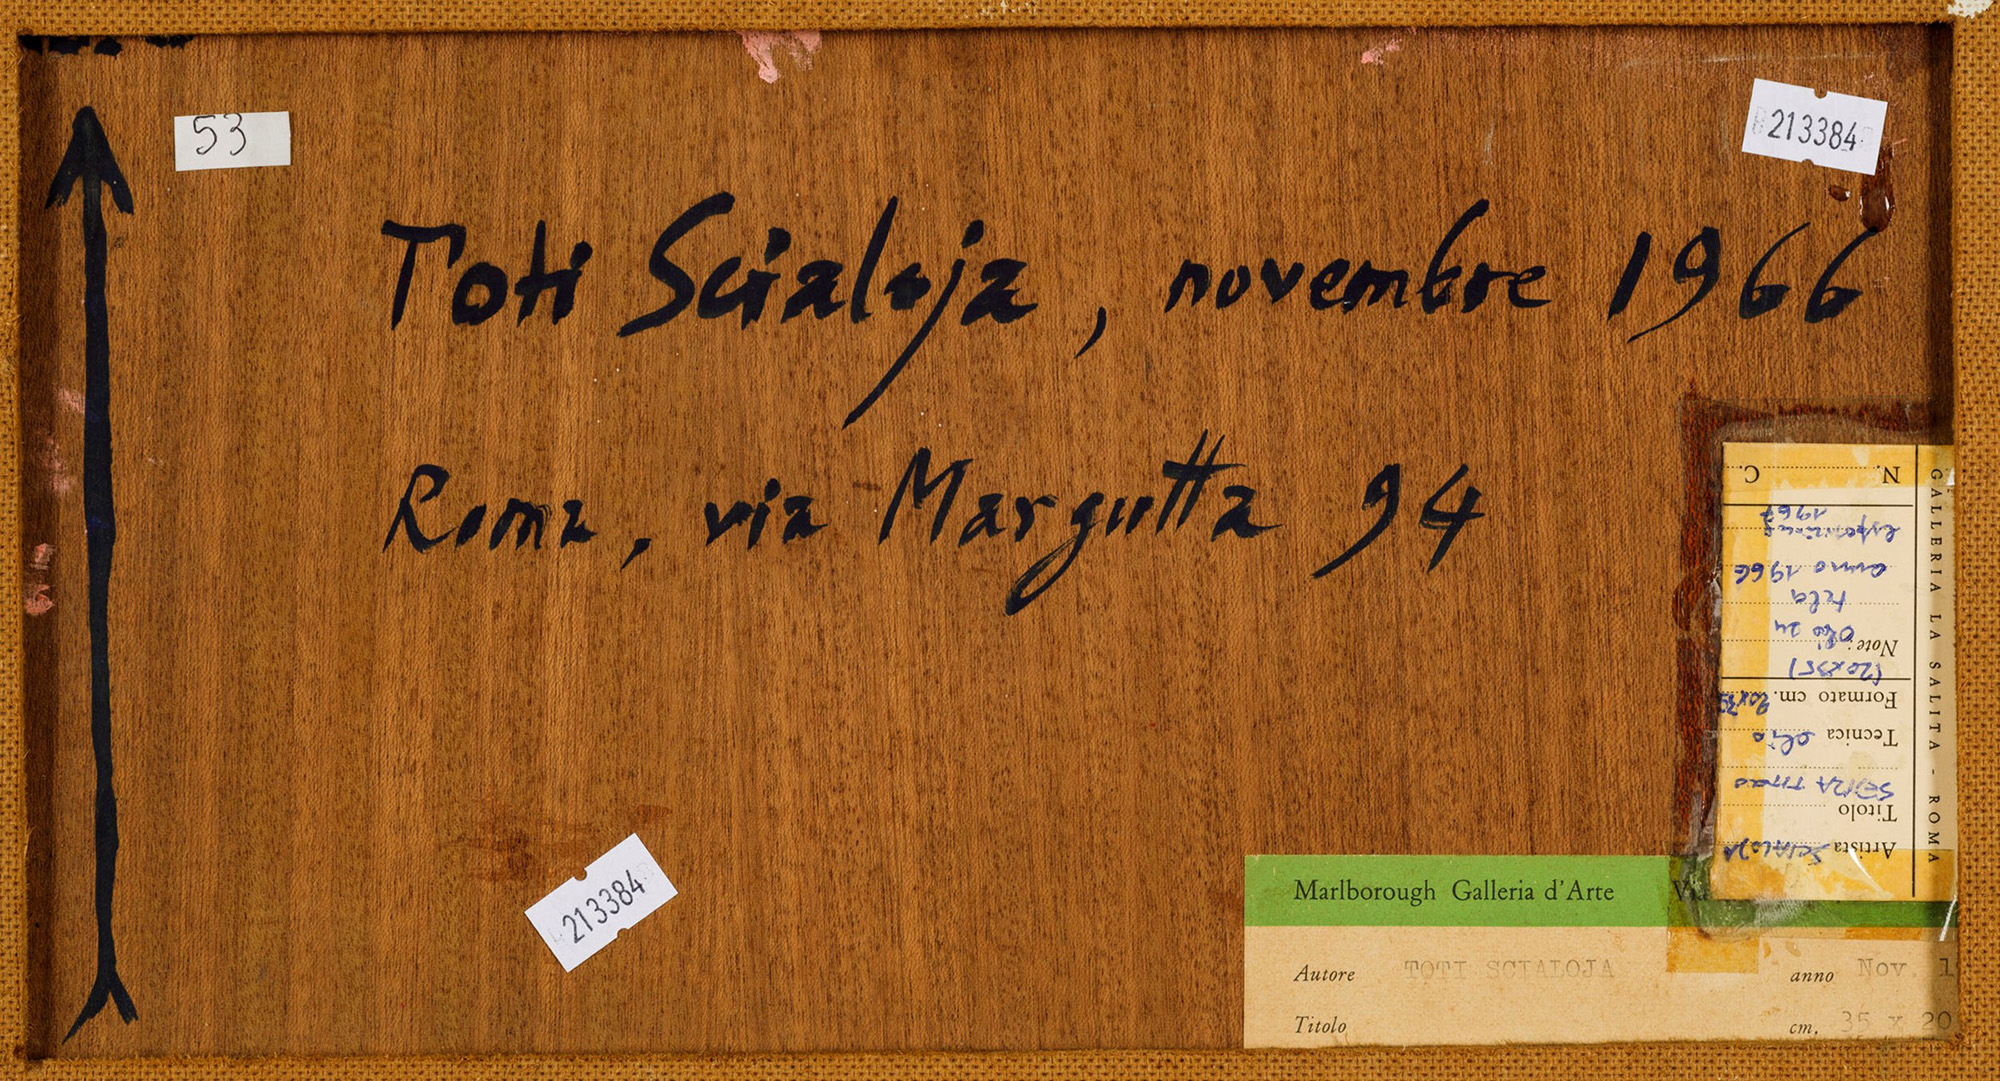 53
213384
Toti Scialoja, novembre 1966
Roma, via Margutta 94
GALLERIA LA SALITA - ROMA
Artista SCIALOJA
Titolo
SENZA TITOLO
Tecnica olio
Formato cm. 20x35
(20x35)
Note: Olio su
tela
anno 1966
esposizione
1967
N. C.
213384
Marlborough Galleria d'Arte
Autore TOTI SCIALOJA anno Nov. 1
Titolo cm. 35 x 20